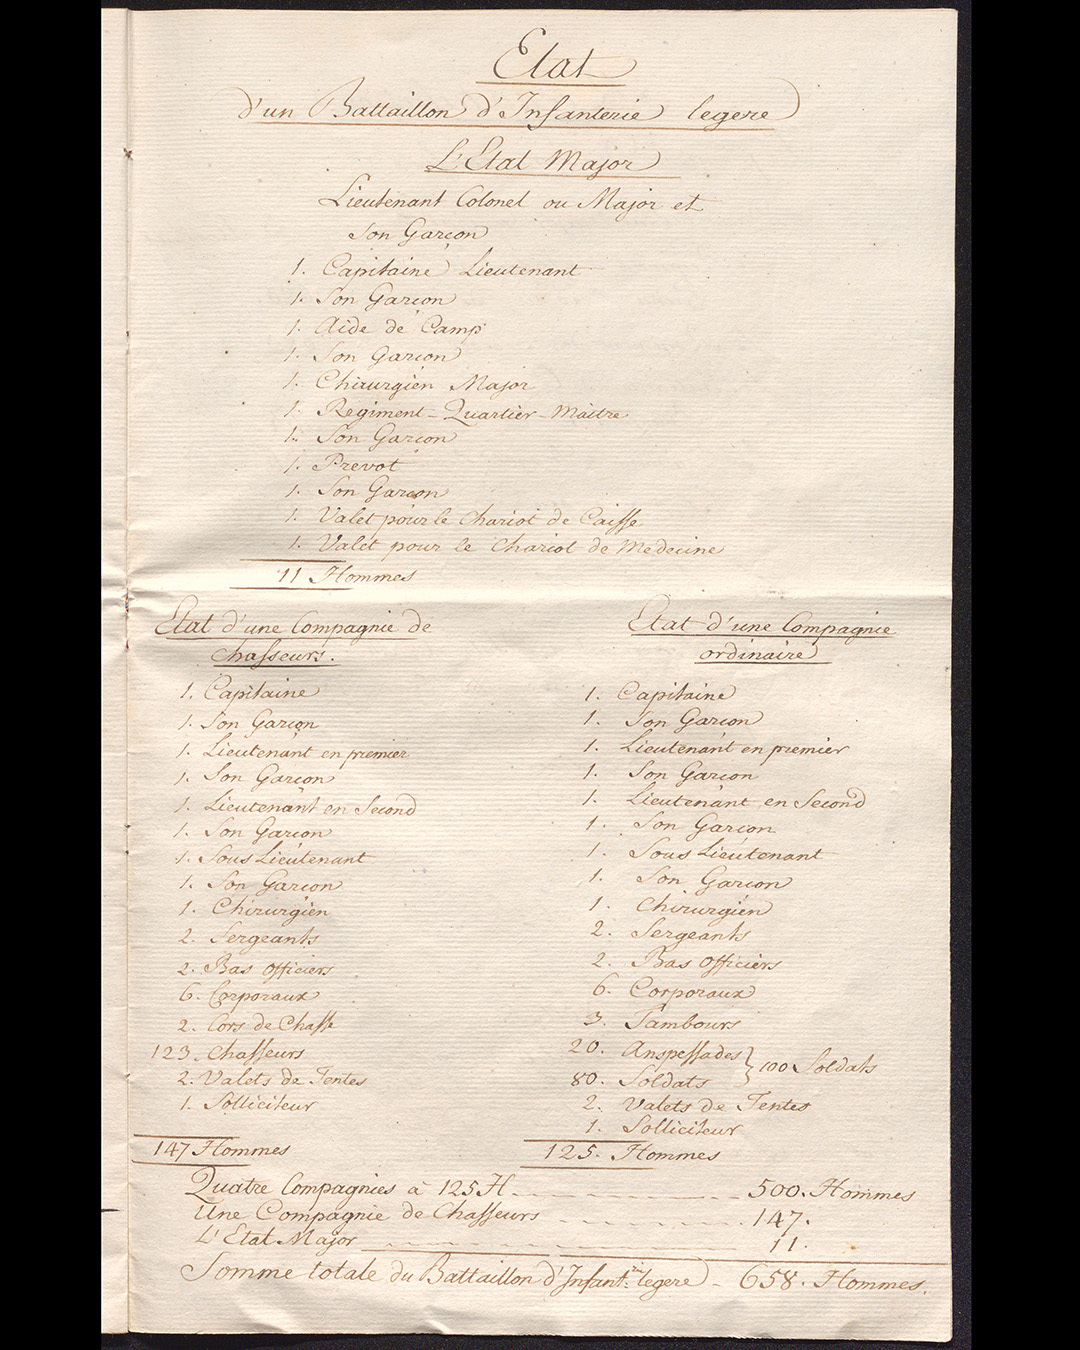 Etat
d'un Battaillon d'Infanterie legere
L'Etat Major
Lieutenant Colonel ou Major et
Son Garçon
1. Capitaine Lieutenant
1. Son Garcon
1. Aide de Camp
1. Son Garcon
1. Chirurgien Major
1. Regiment-Quartier-Maitre
1. Son Garcon
1. Prevot
1. Son Garcon
1. Valet pour le Chariot de Caisse
1. Valet pour le Chariot de Medecine
11 Hommes
Etat d'une Compagnie de
Chasseurs.
1. Capitaine
1. Son Garçon
1. Lieutenant en premier
1. Son Garcon
1. Lieutenant en Second
1. Son Garcon
1. Sous Lieutenant
1. Son Garcon
1. Chirurgien
2. Sergeants
2. Bas Officiers
6. Corporaux
2. Cors de Chasse
123. Chasseurs
2. Valets de Tentes
1. Solliciteur
147 Hommes
Etat d'une Compagnie
ordinaire
1. Capitaine
1. Son Garcon
1. Lieutenant en premier
1. Son Garcon
1. Lieutenant en Second
1. Son Garcon
1. Sous Lieutenant
1. Son Garcon
1. Chirurgien
2. Sergeants
2. Bas Officiers
6. Corporaux
3. Tambours
20. Anspessades } 100 Soldats
80. Soldats
2. Valets de Tentes
1. Solliciteur
125. Hommes
Quatre Compagnies à 125 H. 500. Hommes
Une Compagnie de Chasseurs 147.
L'Etat Major 11.
Somme totale du Battaillon d'Infant:rie legere - 658. Hommes.